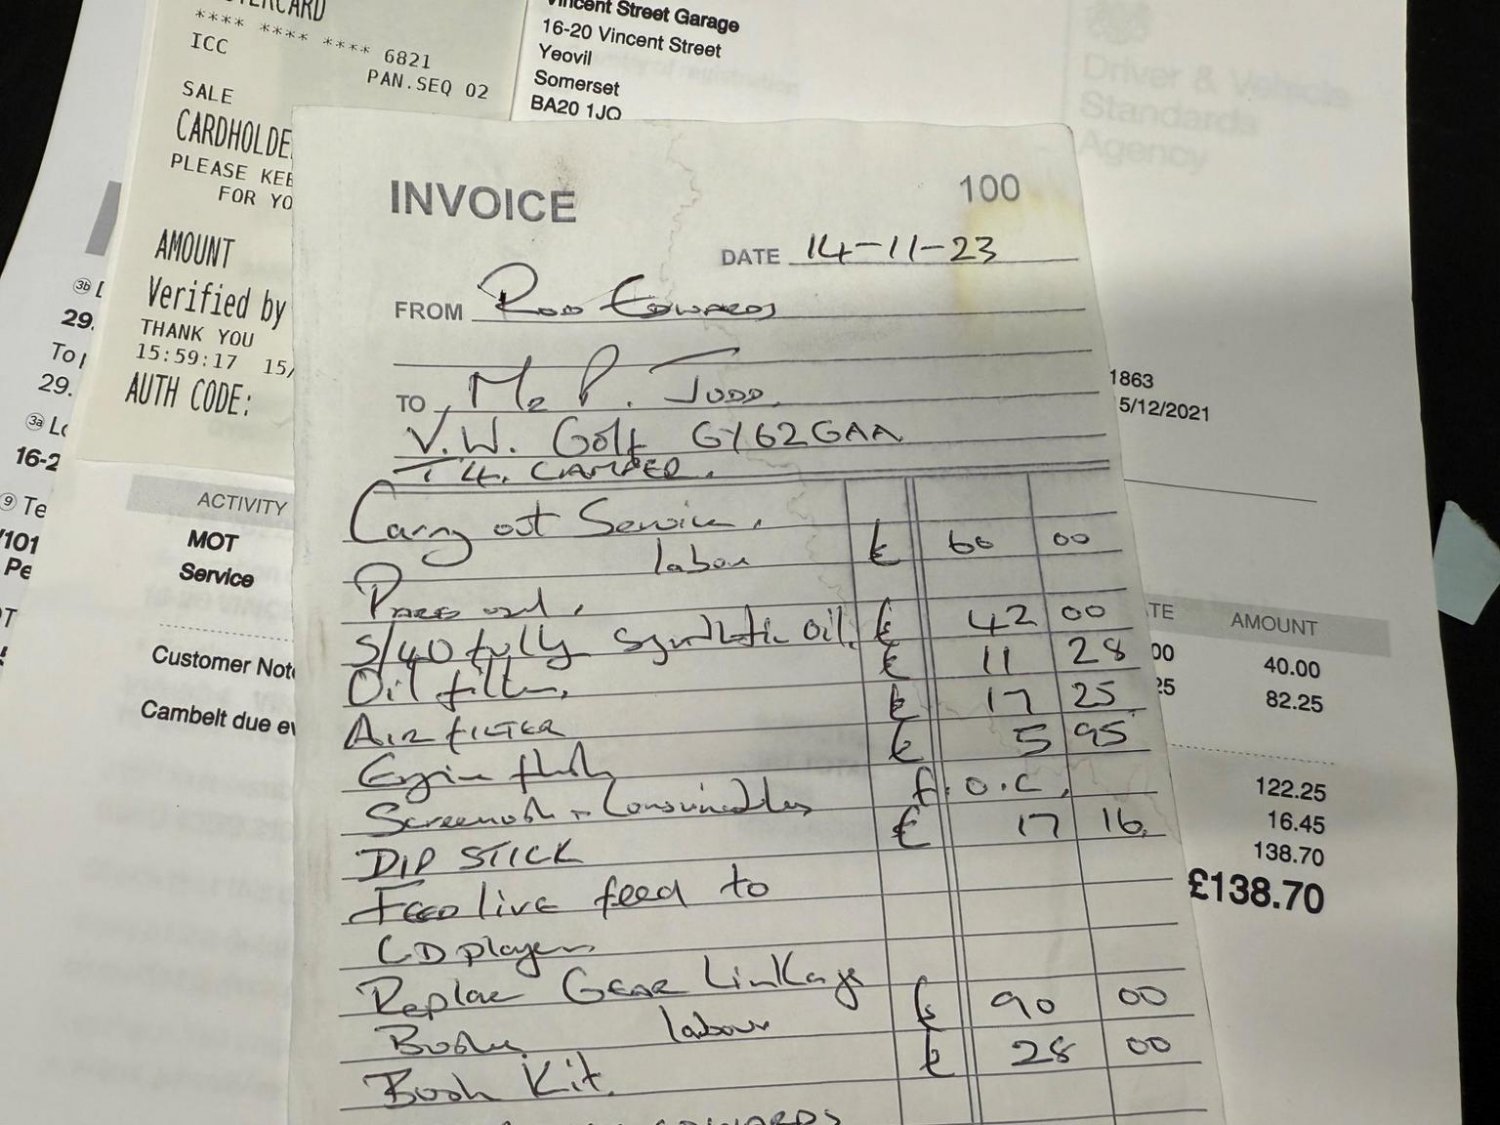 TERCARD
**** **** **** 6821
ICC
PAN.SEQ 02
SALE
CARDHOLDE
PLEASE KEE
FOR YO
AMOUNT
Verified by
THANK YOU
15:59:17 15/
AUTH CODE:
Vincent Street Garage
16-20 Vincent Street
Yeovil
Somerset
BA20 1JQ
Driver & Vehicle
Standards
Agency
3b
29.
To
29.
3a Lo
16-2
9 Te
/101
Pe
ACTIVITY
MOT
Service
Customer Note
Cambelt due ev
INVOICE 100
DATE 14-11-23
FROM Rod Edwards
TO Mr P. Judd.
V.W. Golf GY62GAA
T4. CAMPER.
Carry out Service.
labour £ 60 00
Parts used.
5/40 fully Synthetic oil. £ 42 00
Oil filter. £ 11 28
AIR FILTER £ 17 25
Engine flush £ 5 95
Screenwash + Consumables f.o.c.
DIP STICK £ 17 16
Feed live feed to
CD player
Replace Gear Linkage
Bushes labour £ 90 00
Bush Kit. £ 28 00
EDWARDS
1863
5/12/2021
TE AMOUNT
00 40.00
25 82.25
122.25
16.45
138.70
£138.70